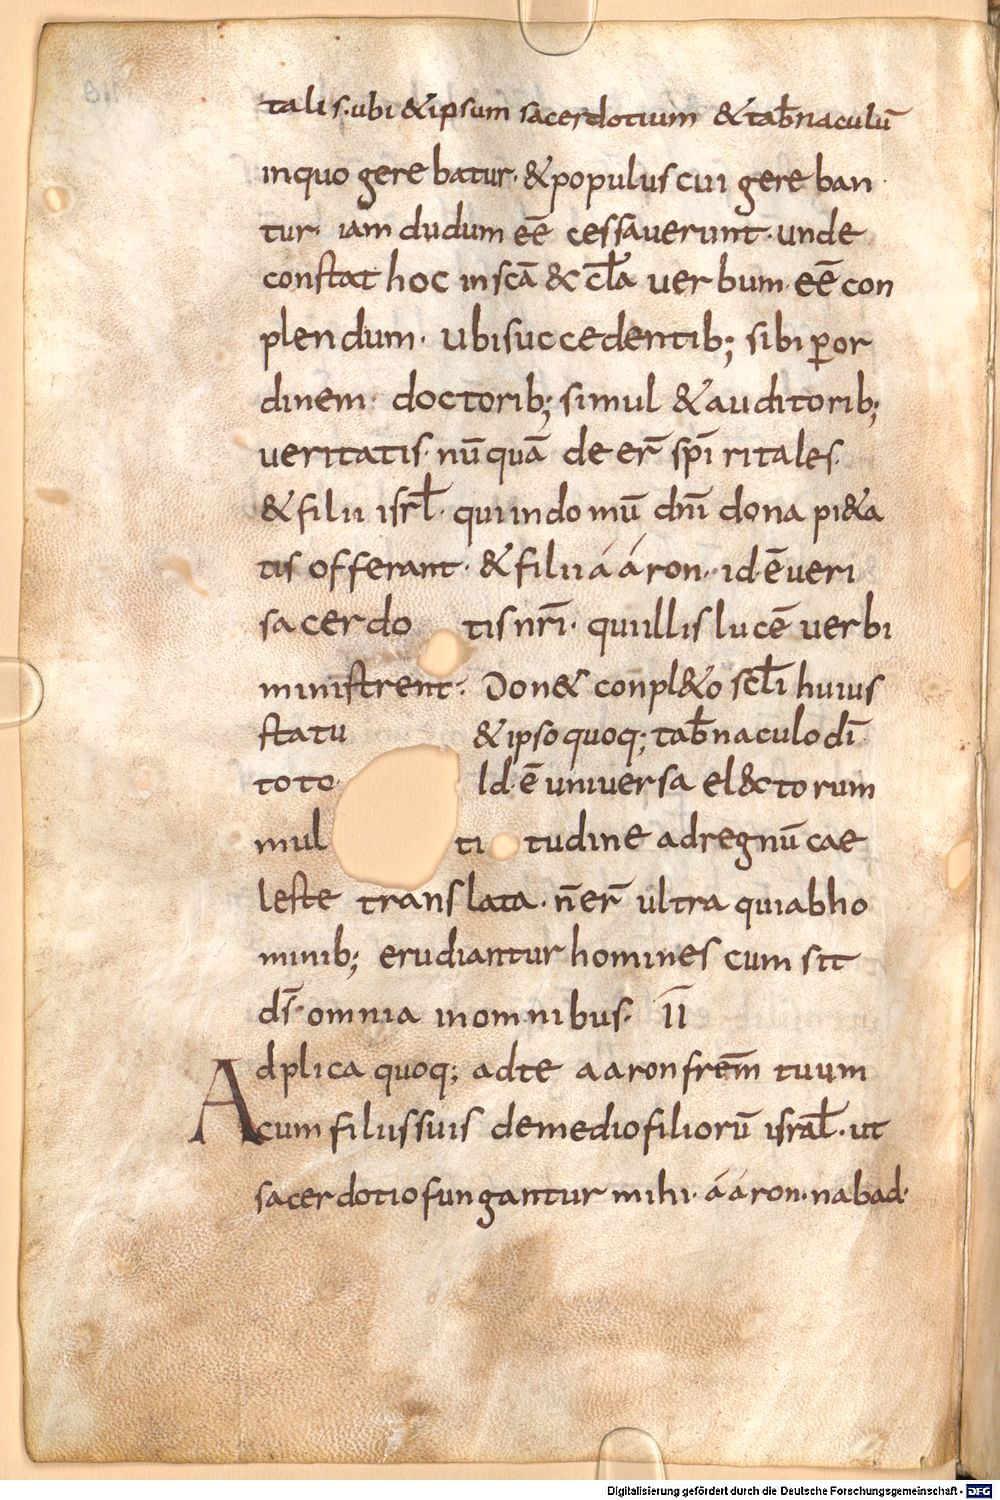 talis. ubi & ipsum sacerdotium & tab̄naculū
inquo gerebatur. & populus cui gereban
tur. iam dudum eē cessauerunt. unde
constat hoc inscā & ccl̄a uerbum eē con
plendum. Ubi succedentib; sibi ꝑor
dinem doctorib; simul & auditorib;
ueritatis. nūquā deer̄ sp̄iritales
& filii isrl̄. qui indomū dn̄i dona pi&a
tis offerant. & filii ááron. id. ē ueri
sacerdotis nr̄i. qui illis lucē uerbi
ministrent. Don& conpl&o scl̄i huius
statu & ipso quoq; tab̄naculo dī
toto. Id. ē uniuersa el&ctorum
multitudine adregnū cae
leste translata. n̄ er̄ ultra qui abho
minib; erudiantur homines cum sit
ds̄ omnia inomnibus. II
Adplica quoq; adte aaron frem̄ tuum
cum filiis suis demedio filiorū isral̄. ut
sacerdotio fungantur mihi. ááron. nabad.
Digitalisierung gefördert durch die Deutsche Forschungsgemeinschaft - DFG